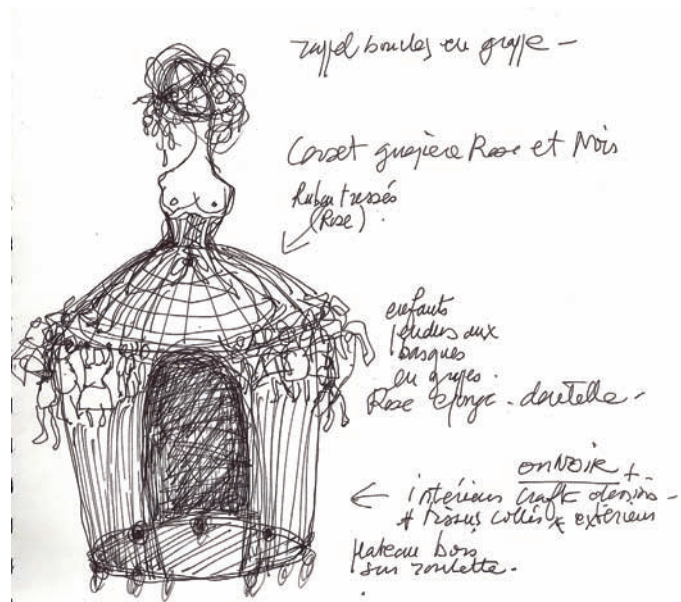 rappel boucles en grappe -
Corset guêpière Rose et Noir
Ruban tressés
(Rose).
enfants
pendus aux
basques
en grapes.
Rose éponge - dentelle -
on NOIR +
← intérieur craft dessins -
+ tissus collés extérieur
plateau bois
sur roulette.